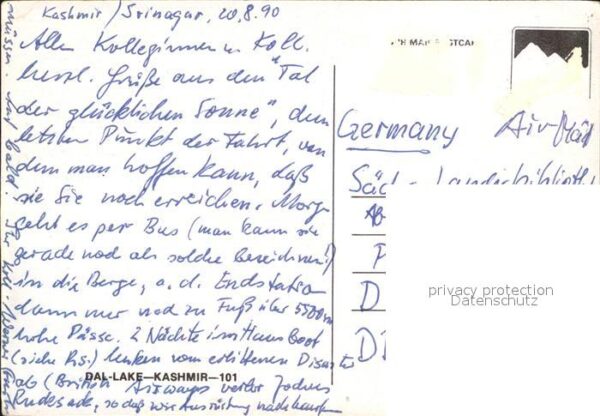 Kashmir / Srinagar, 20.8.90
Allen Kolleginnen u. Koll.
herzl. Grüße aus dem "Tal
der glücklichen Sonne", dem
letzten Punkt der Fahrt, von
dem man hoffen kann, daß
sie Sie noch erreichen. Morgen
geht es per Bus (man kann sie
gerade noch als solche bezeichnen!)
in die Berge, a. d. Endstation
dann nur noch zu Fuß über 5500m
hohe Pässe. 2 Nächte im Haus Boot
(siehe Rs.) lenken vom erlittenen
ab (British Airways verlor
Rucksack, so daß wir Ausrüstung nachkaufen
müssen. Auf bald. Ihr Koll.
DAL-LAKE—KASHMIR—101
Germany Air Mail
Säch. Landesbibliothek
privacy protection
Datenschutz